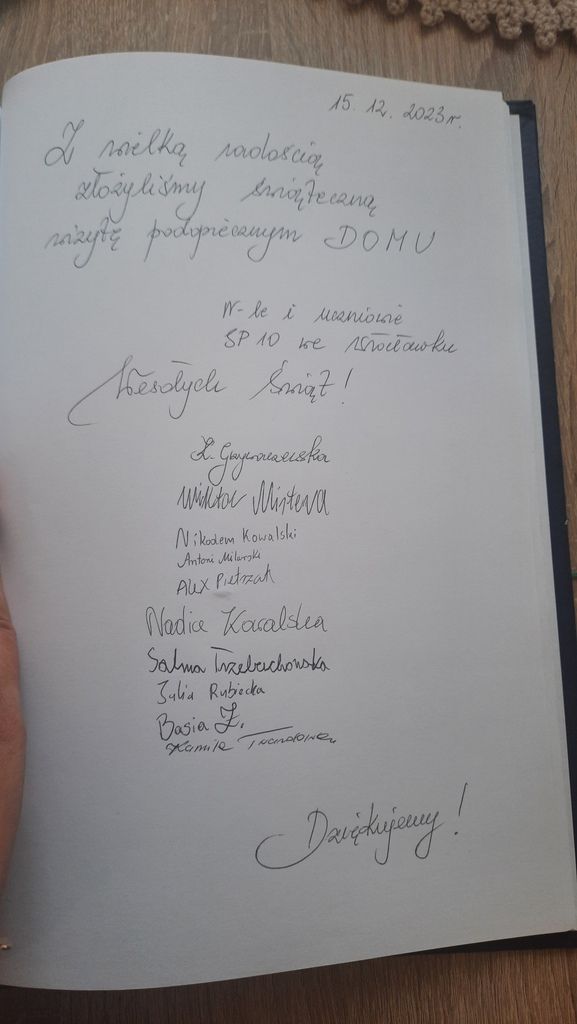 15. 12. 2023 r.
Z wielką radością
złożyliśmy świąteczną
wizytę podopiecznym DOMU
N-le i uczniowie
SP 10 we Włocławku
Wesołych Świąt!
Wiktor
Nikodem Kowalski
Antoni Milarski
Alex Pietrzak
Nadia Kavalska
Salma Trzebuchowska
Julia Rubiecka
Basia Z.
Kamila
Dziękujemy!